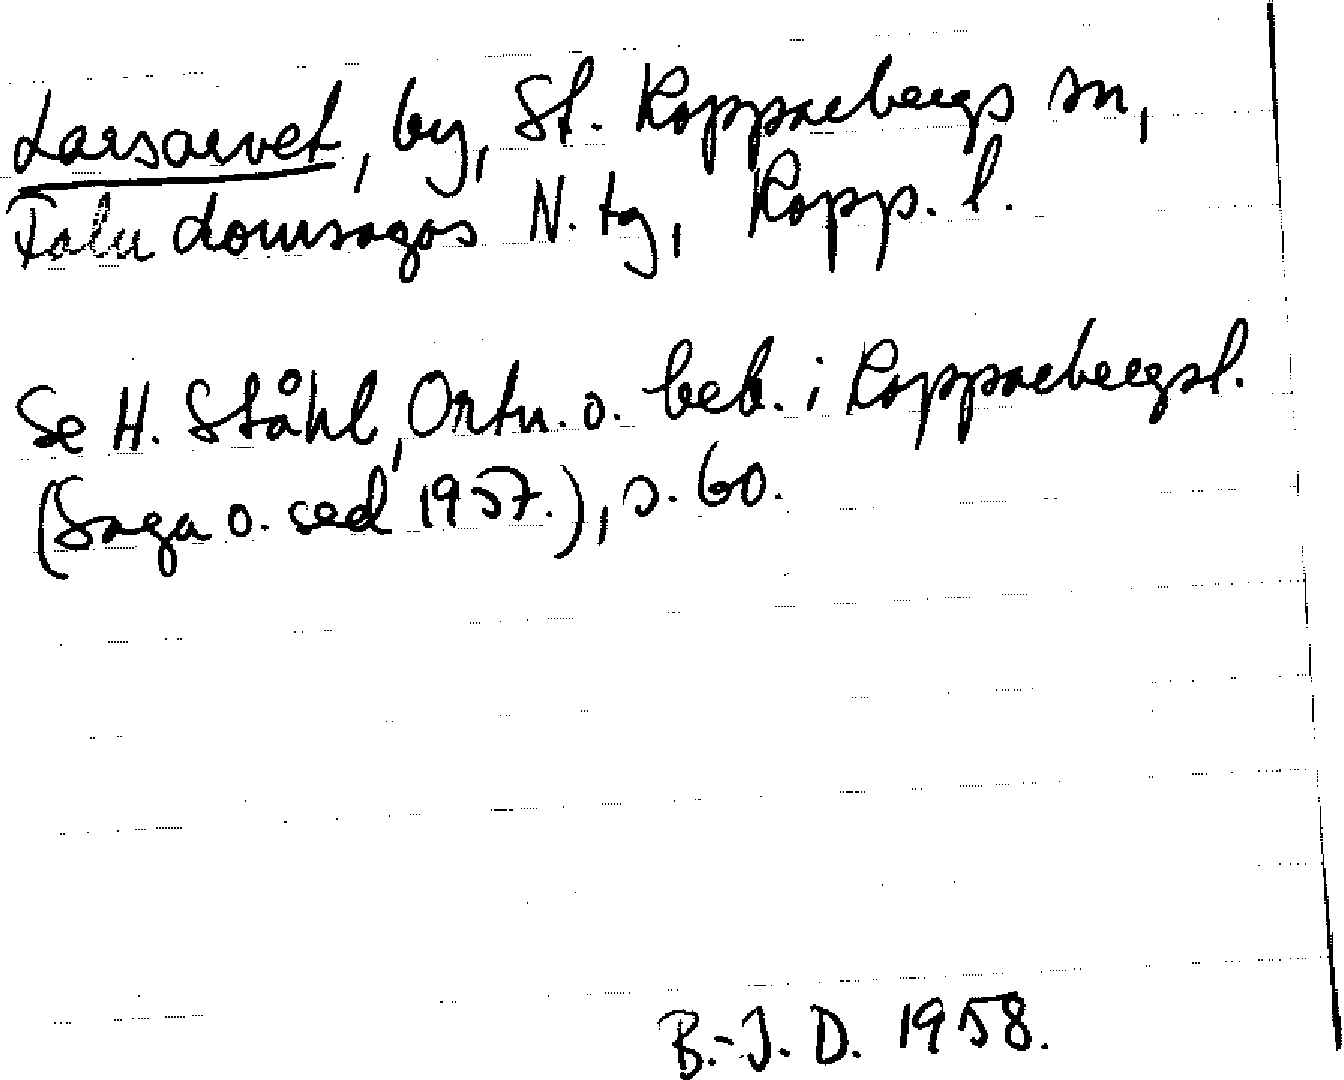 Larsarvet, by, St. Kopparbergs sn,
Falu domsagas N. tg, Kopp. l.
Se H. Ståhl, Ortn. o. beb. i Kopparbergsl.
(Saga o. sed 1957.), s. 60.
B.-J. D. 1958.